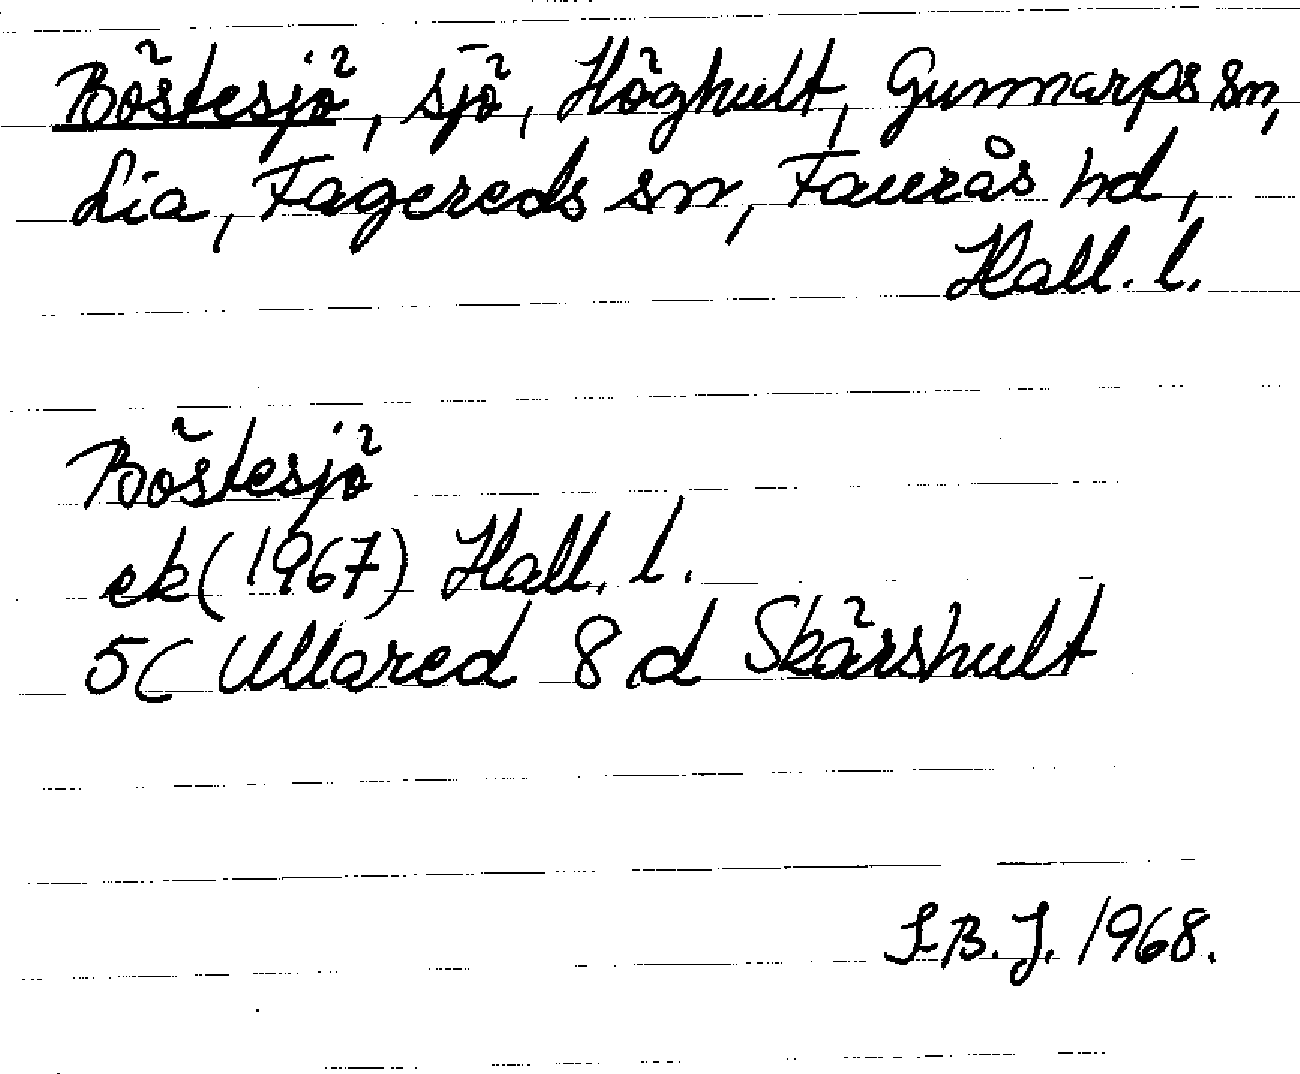 Böstesjö, sjö, Höghult, Gunnarps sn,
Lia, Fagereds sn, Faurås hd,
Hall. l.
Böstesjö
ek (1967) Hall. l.
5C Ullared 8 d Skärshult
I-B. J. 1968.